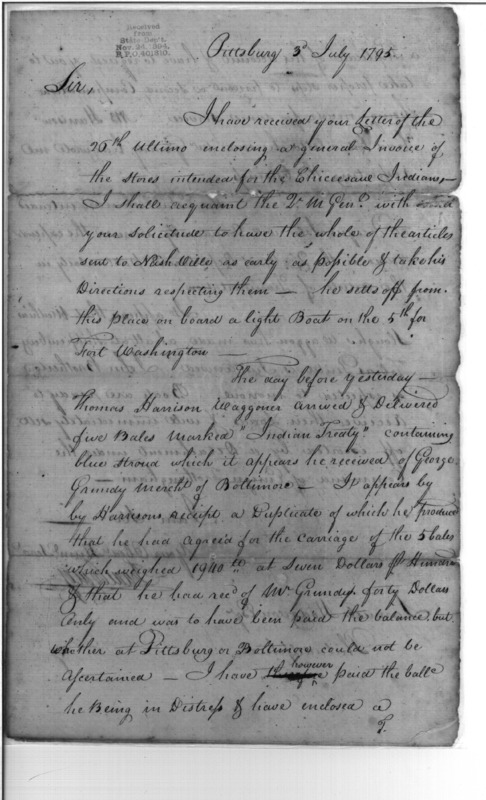 Received
from
State Dept.
Nov. 24, 894,
R.P.O. 401310.
Pittsburg 3d July 1795
Sir,
I have received your Letter of the
26th Ultimo enclosing a general Invoice of
the Stores intended for the Chicesaue Indians,
I shall acquaint the Qr M Genl with
your solicitude to have the whole of the articles
sent to NashVille as early as possible & take his
Directions respecting them — he setts off from
this place on board a light Boat on the 5th for
Fort Washington —
The day before yesterday —
Thomas Harrison Waggoner arrived & Delivered
five Bales Marked "Indian Treaty" containing
blue Stroud which it appears he received of George
Grundy Mercht of Boltimore — It appears by
by Harrisons receipt a Duplicate of which he produced
that he had agreed for the carriage of the 5 bales
which weighed 1940 lb at Seven Dollars Pr Hundred
& that he had recd of Mr Grundy forty Dollars
only and was to have been paid the balance, but
whither at Pittsburg or Boltimore could not be
ascertained — I have however paid the ballc
he Being in Distress & have enclosed a